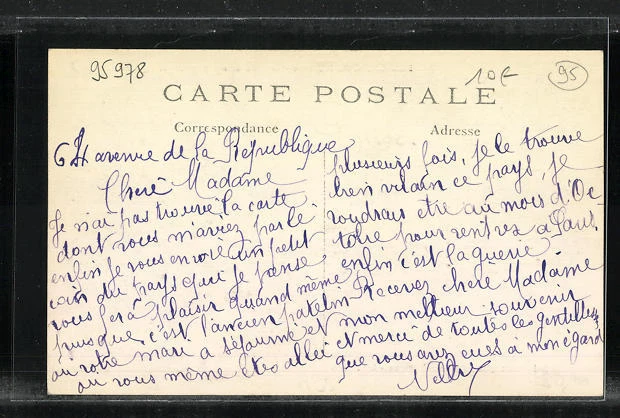 95978
10€
95
CARTE POSTALE
Correspondance
Adresse
64 avenue de la République
Chère Madame
Je n'ai pas trouvé la carte
dont vous m'aviez parlé
enfin je vous envoie un petit
coin du pays que je pense
vous fera plaisir quand même
puisque c'est l'ancien patelin
ou votre mari a séjourné et
ou vous même êtes allée
plusieurs fois, je le trouve
bien vilain ce pays, je
voudrais etre au mois d'Oc
tobre pour rentrez a Paris
enfin c'est la guerre
Recevez chère Madame
mon meilleur souvenir
et merci de toutes les gentillesses
que vous avez eues à mon égard